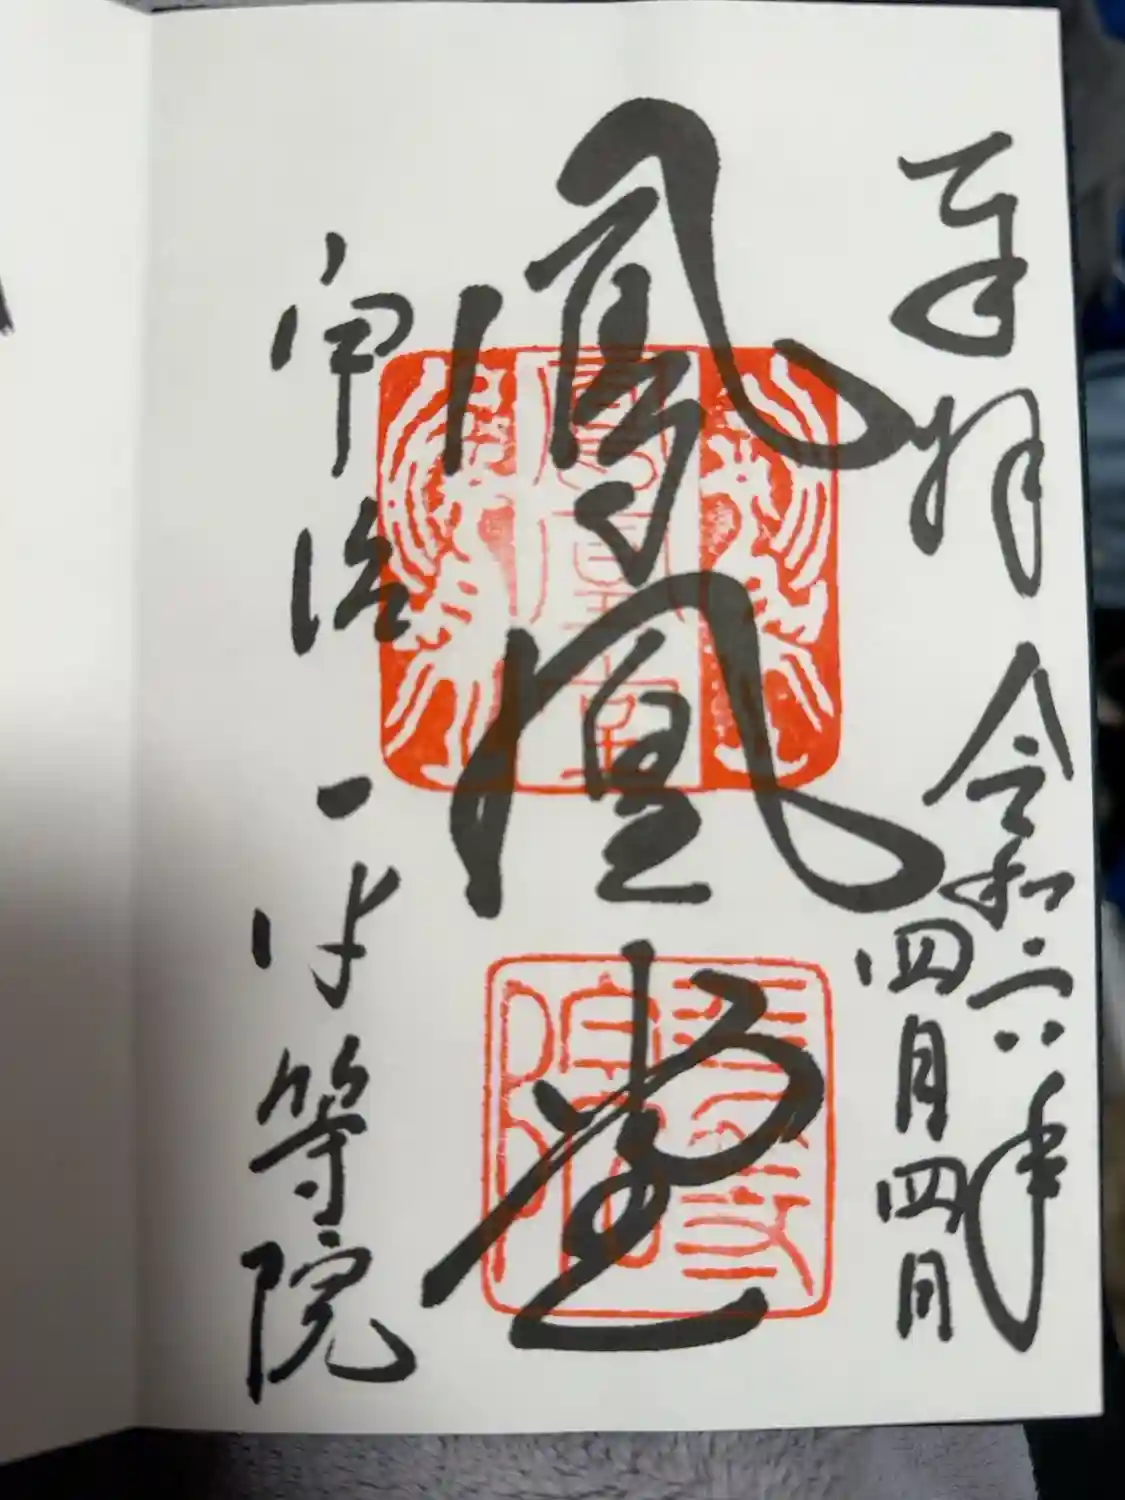 奉拝 令和六年
四月四日
鳳凰堂
宇治 平等院
鳳凰堂